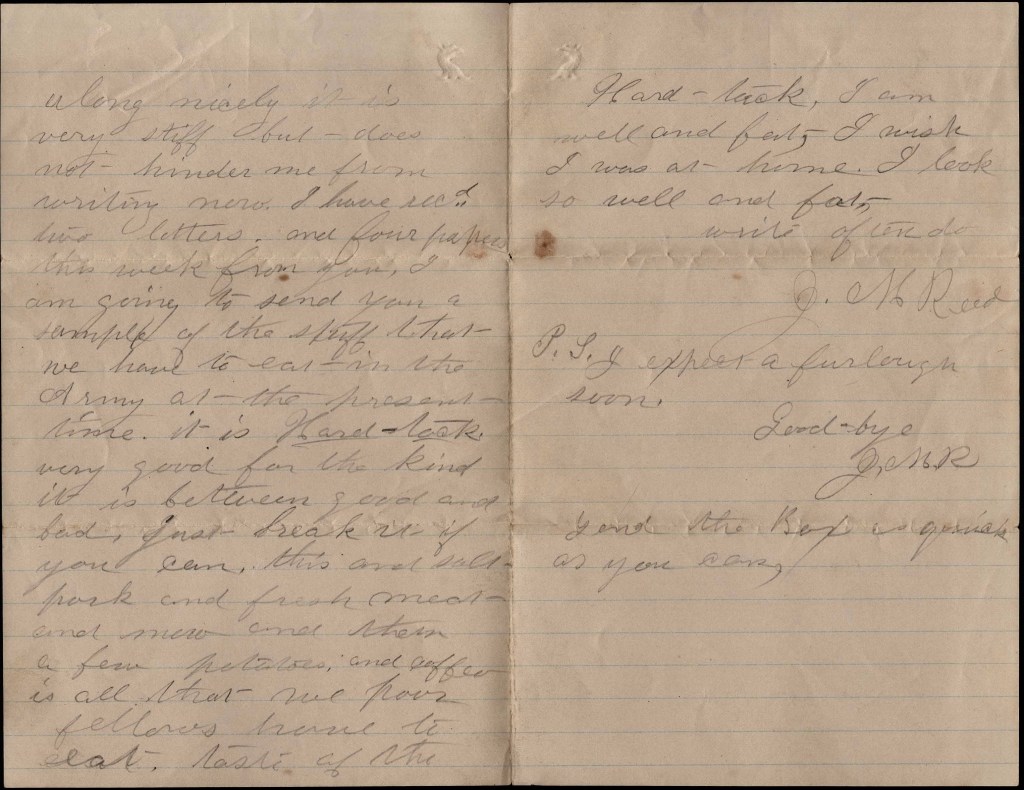 along nicely it is
very stiff but - does
not hinder me from
writing now. I have recd.
two letters. and four papers
this week from you, I
am going to send you a
sample of the stuff that
we have to eat in the
Army at the present
time. it is Hard-tack.
very good for the kind
it is between good and
bad, Just break it if
you can. this and salt
pork and fresh meat
and now and them
a few potatoes; and coffee
is all that we poor
fellows have to
eat. taste of the
Hard-tack, I am
well and fat, I wish
I was at home. I look
so well and fat,
write often do
J. M Reed
P.S. I expect a furlough
soon.
Good-bye
J. M. R
Send the Box as quick
as you can,